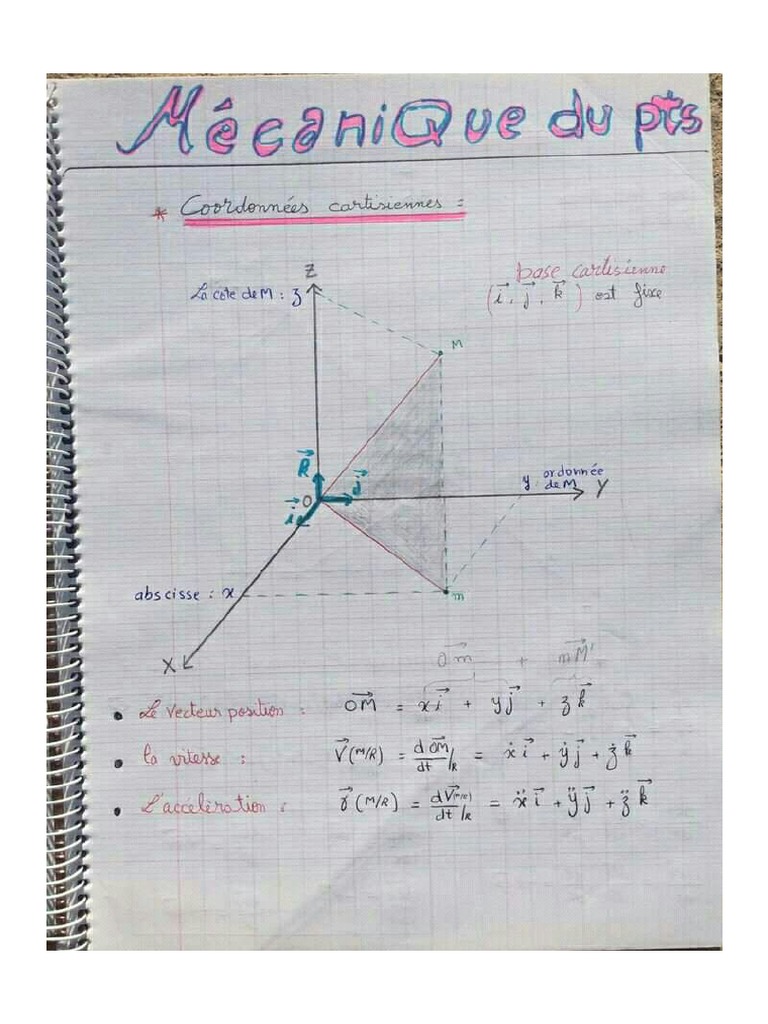 Mécanique du pts
* Coordonnées cartisiennes :
base cartisienne
(i⃗, j⃗, k⃗) est fixe
Z
La côte de M : z
M
k⃗
j⃗
i⃗
O
y : ordonnée
de M
Y
abscisse : x
m
X
Om⃗ + mM⃗'
• Le vecteur position : OM⃗ = x i⃗ + y j⃗ + z k⃗
• la vitesse : V⃗(M/R) = dOM⃗/dt /R = ẋ i⃗ + ẏ j⃗ + ż k⃗
• L'accélération : γ⃗(M/R) = dV⃗(M/R)/dt /R = ẍ i⃗ + ÿ j⃗ + z̈ k⃗